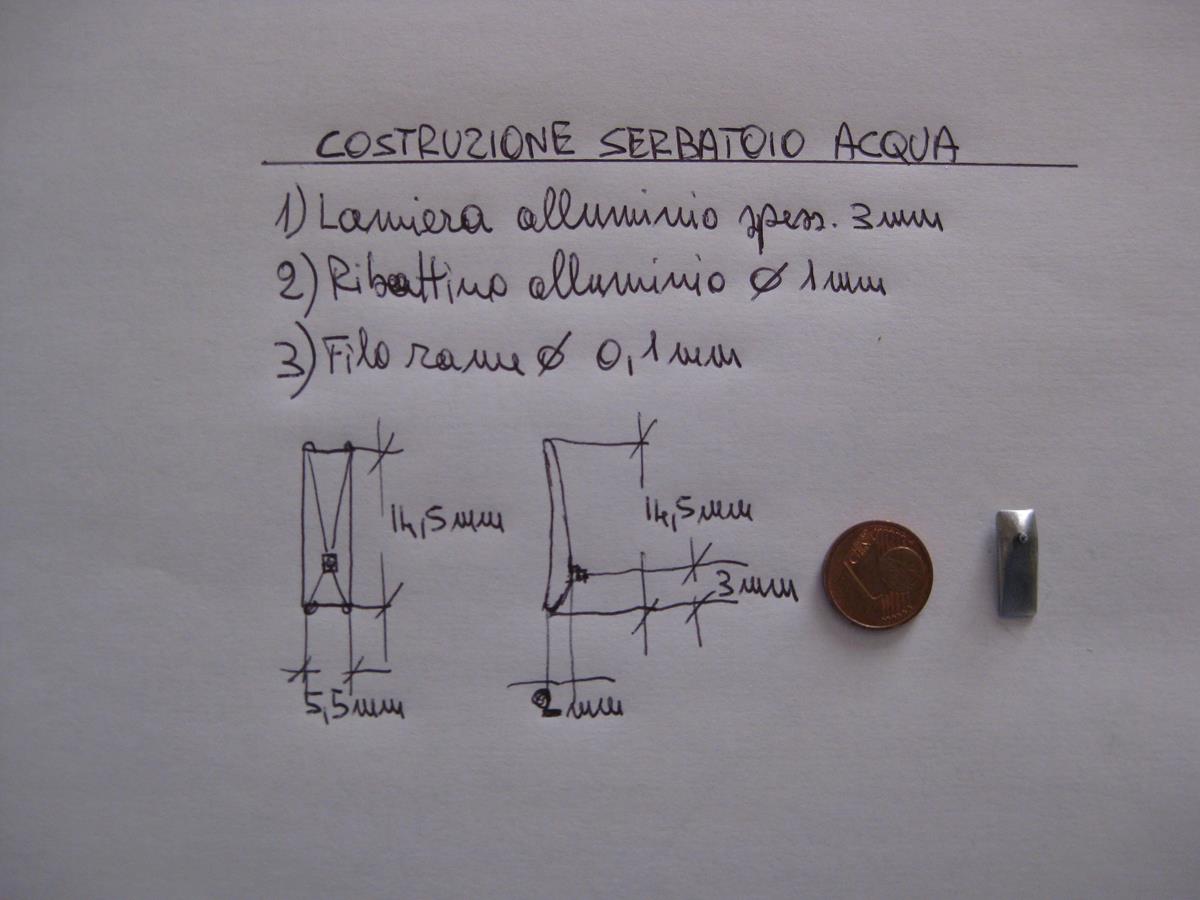 COSTRUZIONE SERBATOIO ACQUA
1) Lamiera alluminio spess. 3mm
2) Ribattino alluminio ø 1mm
3) Filo rame ø 0,1mm
14,5mm
14,5mm
3mm
5,5mm
2mm
1